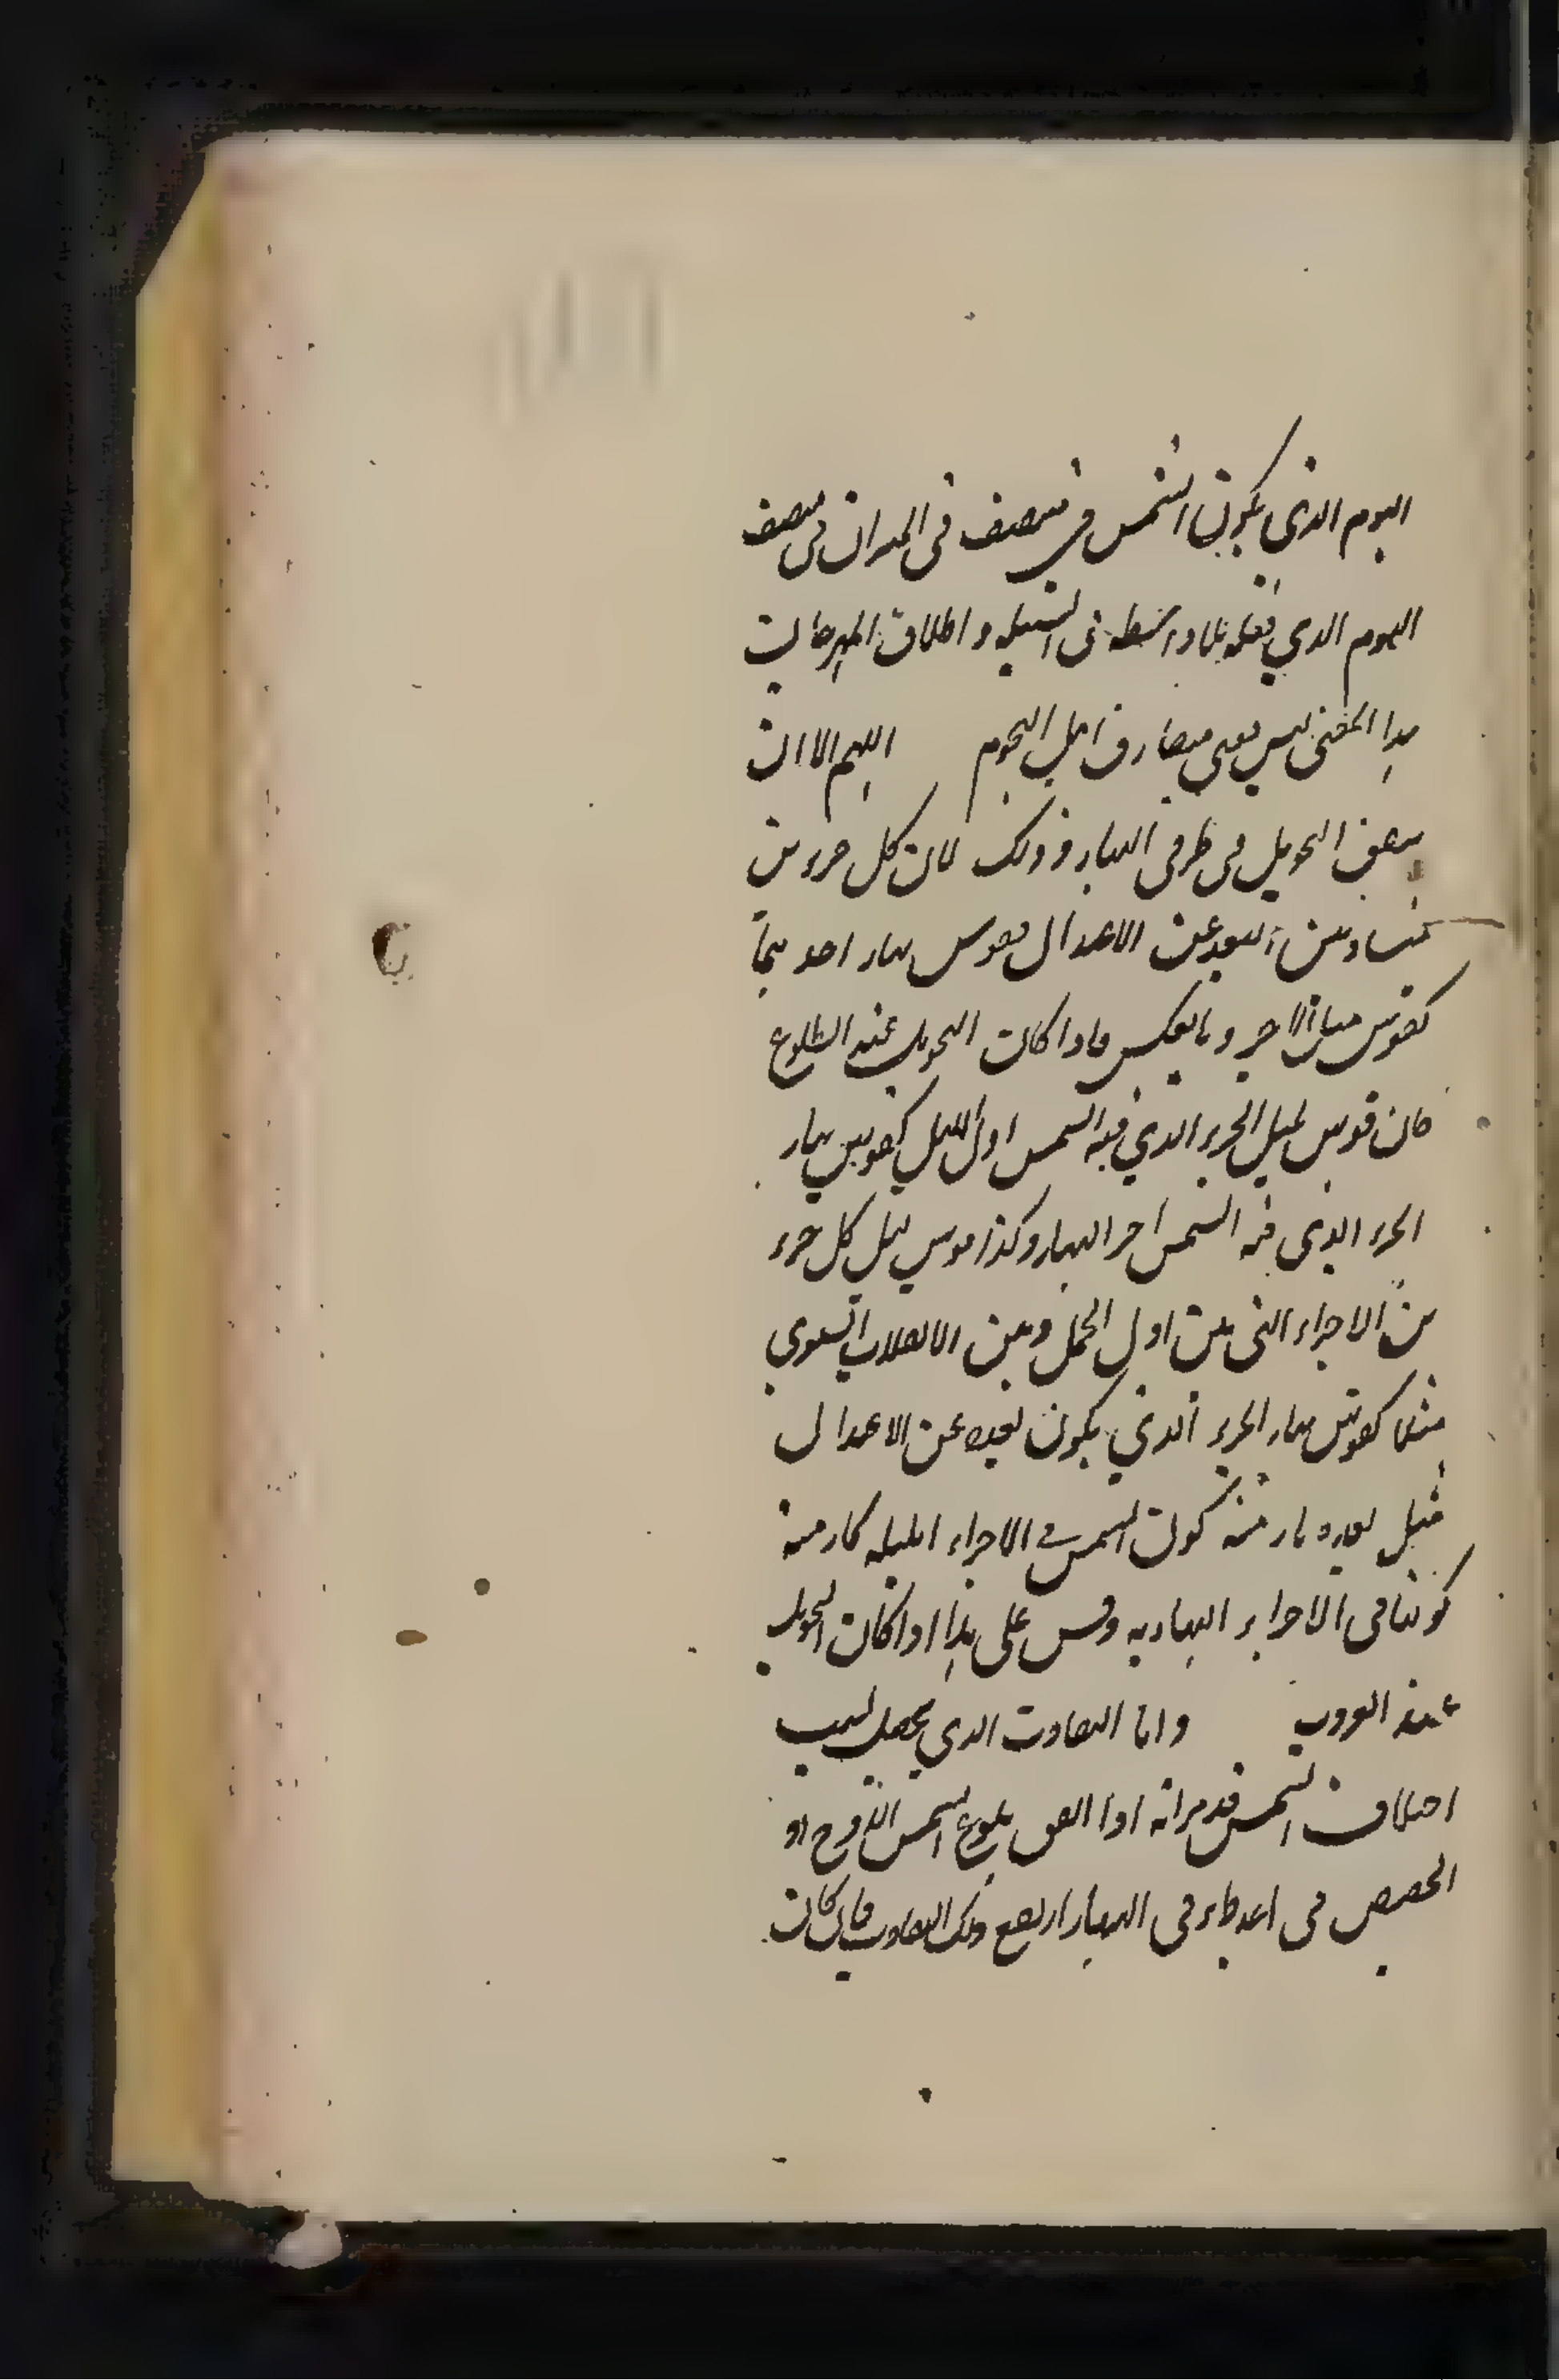 اليوم الذي يكون الشمس في منتصفه في الميزان في منتصف
اليوم الذي قبله بلا واسطة في السنبلة واطلاق المهرجان
بهذا المعنى ليس معنى متعارف اهل النجوم اللهم الا ان
يتفق التحويل في طرفي النهار وذلك لان كل جزءين
متساويين البعد عن الاعتدال فقوس نهار احدهما
كقوس ليل الاخر وبالعكس فاذا كان التحويل عند الطلوع
كان قوس ليل الجزء الذي فيه الشمس اول الليل كقوس نهار
الجزء الذي فيه الشمس اخر النهار وكذا قوس ليل كل جزء
من الاجزاء التي بين اول الحمل وبين الانقلاب الشتوي
مثلا كقوس نهار الجزء الذي يكون بعده عن الاعتدال
مثل بعده فازمنة كون الشمس في الاجزاء الليلية كازمنة
كونها في الاجزاء النهارية وقس على هذا اذا كان التحويل
عند الغروب واما التفاوت الذي يحصل بسبب
اختلاف الشمس فقد مر انه اذا اتفق بلوغ الشمس الاوج او
الحضيض في احد طرفي النهار ارتفع ذلك التفاوت فان كان